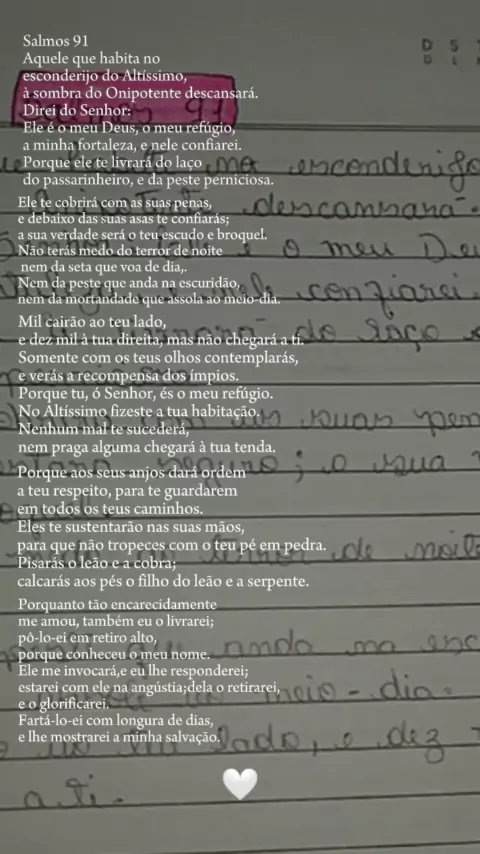 Salmos 91
Aquele que habita no
esconderijo do Altíssimo,
à sombra do Onipotente descansará.
Direi do Senhor:
Ele é o meu Deus, o meu refúgio,
a minha fortaleza, e nele confiarei.
Porque ele te livrará do laço
do passarinheiro, e da peste perniciosa.
Ele te cobrirá com as suas penas,
e debaixo das suas asas te confiarás;
a sua verdade será o teu escudo e broquel.
Não terás medo do terror de noite
nem da seta que voa de dia,.
Nem da peste que anda na escuridão,
nem da mortandade que assola ao meio-dia.
Mil cairão ao teu lado,
e dez mil à tua direita, mas não chegará a ti.
Somente com os teus olhos contemplarás,
e verás a recompensa dos ímpios.
Porque tu, ó Senhor, és o meu refúgio.
No Altíssimo fizeste a tua habitação.
Nenhum mal te sucederá,
nem praga alguma chegará à tua tenda.
Porque aos seus anjos dará ordem
a teu respeito, para te guardarem
em todos os teus caminhos.
Eles te sustentarão nas suas mãos,
para que não tropeces com o teu pé em pedra.
Pisarás o leão e a cobra;
calcarás aos pés o filho do leão e a serpente.
Porquanto tão encarecidamente
me amou, também eu o livrarei;
pô-lo-ei em retiro alto,
porque conheceu o meu nome.
Ele me invocará,e eu lhe responderei;
estarei com ele na angústia;dela o retirarei,
e o glorificarei.
Fartá-lo-ei com longura de dias,
e lhe mostrarei a minha salvação.
D S T
na esconderijo
descansará.
o meu Deu
confiarei.
do laço
suas pen
; o sua
de noite
anda na esc
meio-dia.
lado, e dez
a ti.